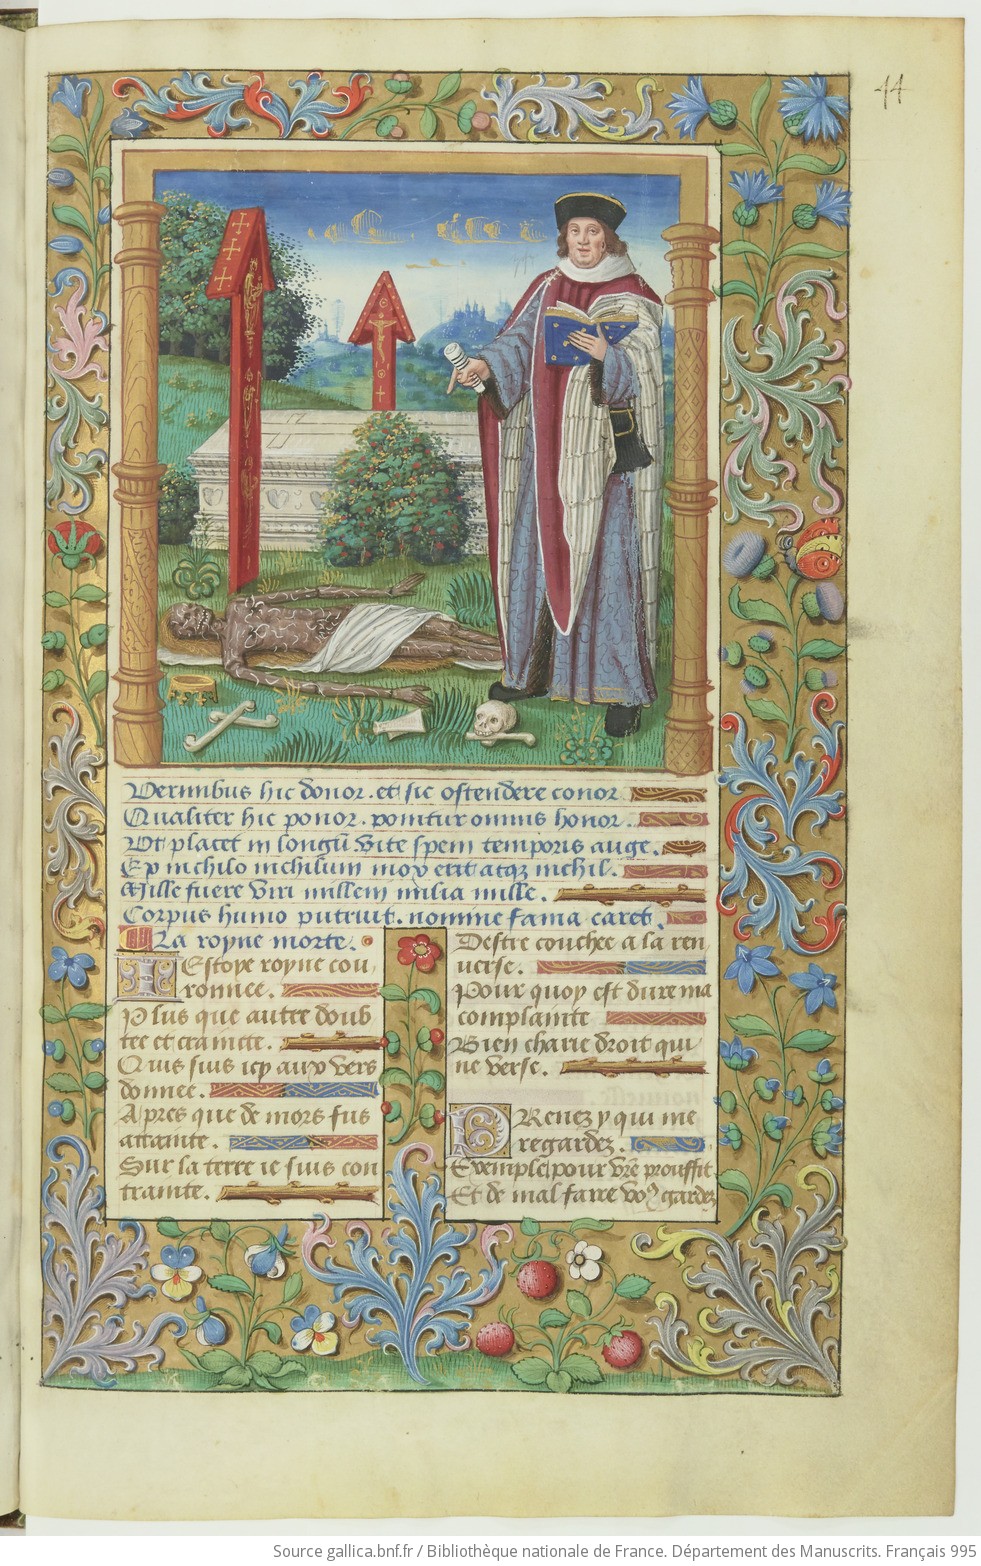 44
Vermibus hic donor. et sic ostendere conor
Qualiter hic ponor. ponitur omnis honor.
Ut placet in longũ vite spem temporis auge.
Ex nichilo nichilum mox erit atqꝫ nichil.
Mille fuere viri millem milia mille.
Corpus humo putruit. nomine fama caret.
La royne morte.
Iestoye royne cou
ronnee.
Plus que autre doub
tee et craincte.
Qui suis icy aux vers
donnee.
Apres que de mors fus
attainte.
Sur la terre ie suis con
trainte.
Destre couchee a la ren
verse.
Pour quoy est dure ma
complainte
Bien charie droit qui
ne verse.
Prenez y qui me
regardez.
Exemple pour vr̃e prouffit
Et de mal faire voꝰ gardez
Source gallica.bnf.fr / Bibliothèque nationale de France. Département des Manuscrits. Français 995